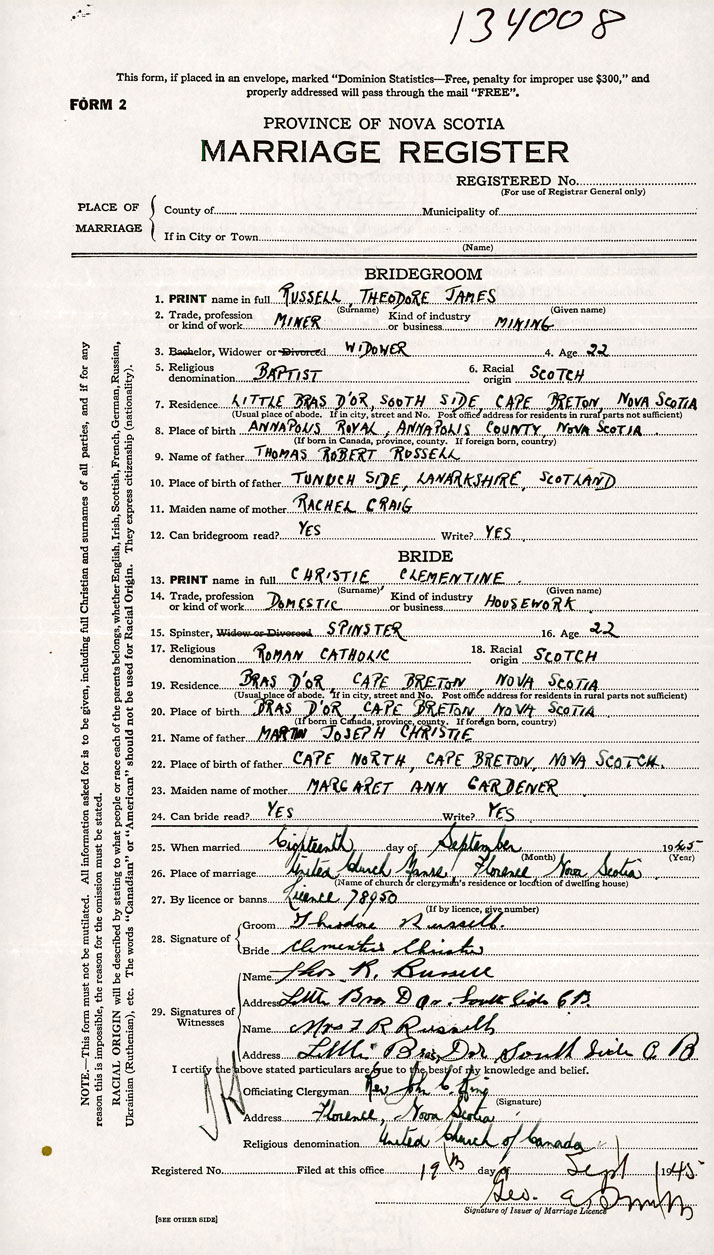 134008
This form, if placed in an envelope, marked "Dominion Statistics—Free, penalty for improper use $300," and
properly addressed will pass through the mail "FREE".
FORM 2
PROVINCE OF NOVA SCOTIA
MARRIAGE REGISTER
REGISTERED No.
(For use of Registrar General only)
PLACE OF MARRIAGE
County of Municipality of
If in City or Town
(Name)
BRIDEGROOM
1. PRINT name in full RUSSELL, THEODORE JAMES
(Surname) (Given name)
2. Trade, profession or kind of work MINER Kind of industry or business MINING
3. Bachelor, Widower or Divorced WIDOWER 4. Age 22
5. Religious denomination BAPTIST 6. Racial origin SCOTCH
7. Residence LITTLE BRAS D'OR, SOUTH SIDE CAPE BRETON, NOVA SCOTIA
(Usual place of abode. If in city, street and No. Post office address for residents in rural parts not sufficient)
8. Place of birth ANNAPOLIS ROYAL, ANNAPOLIS COUNTY, NOVA SCOTIA
(If born in Canada, province, county. If foreign born, country)
9. Name of father THOMAS ROBERT RUSSELL
10. Place of birth of father SIDE, LANARKSHIRE, SCOTLAND
11. Maiden name of mother RACHEL CRAIG
12. Can bridegroom read? YES Write? YES
BRIDE
13. PRINT name in full CHRISTIE CLEMENTINE
(Surname) (Given name)
14. Trade, profession or kind of work DOMESTIC Kind of industry or business HOUSEWORK
15. Spinster, Widow or Divorced SPINSTER 16. Age 22
17. Religious denomination ROMAN CATHOLIC 18. Racial origin SCOTCH
19. Residence BRAS D'OR, CAPE BRETON, NOVA SCOTIA
(Usual place of abode. If in city, street and No. Post office address for residents in rural parts not sufficient)
20. Place of birth BRAS D'OR, CAPE BRETON NOVA SCOTIA
(If born in Canada, province, county. If foreign born, country)
21. Name of father MARTIN JOSEPH CHRISTIE
22. Place of birth of father CAPE NORTH, CAPE BRETON, NOVA SCOTIA.
23. Maiden name of mother MARGARET ANN GARDENER
24. Can bride read? YES Write? YES
25. When married Eighteenth day of September 1945
(Month) (Year)
26. Place of marriage United Church Manse, Florence Nova Scotia
(Name of church or clergyman's residence or location of dwelling house)
27. By licence or banns Licence 78950
(If by licence, give number)
28. Signature of
Groom Theodore Russell.
Bride Clementine Christie
29. Signatures of Witnesses
Name Thos R. Russell
Address Little Bras D or. South Side C B.
Name Mrs T R Russell
Address Little Bras Dor South Side C B
I certify the above stated particulars are true to the best of my knowledge and belief.
Officiating Clergyman Rev John C. King
(Signature)
Address Florence, Nova Scotia
Religious denomination United Church of Canada
Registered No. Filed at this office 19th day of Sept 1945
Geo.
Signature of Issuer of Marriage Licence
[SEE OTHER SIDE]
NOTE.—This form must not be mutilated. All information asked for is to be given, including full Christian and surnames of all parties, and if for any
reason this is impossible, the reason for the omission must be stated.
RACIAL ORIGIN will be described by stating to what people or race each of the parents belongs, whether English, Irish, Scottish, French, German, Russian,
Ukrainian (Ruthenian), etc. The words "Canadian" or "American" should not be used for Racial Origin. They express citizenship (nationality).